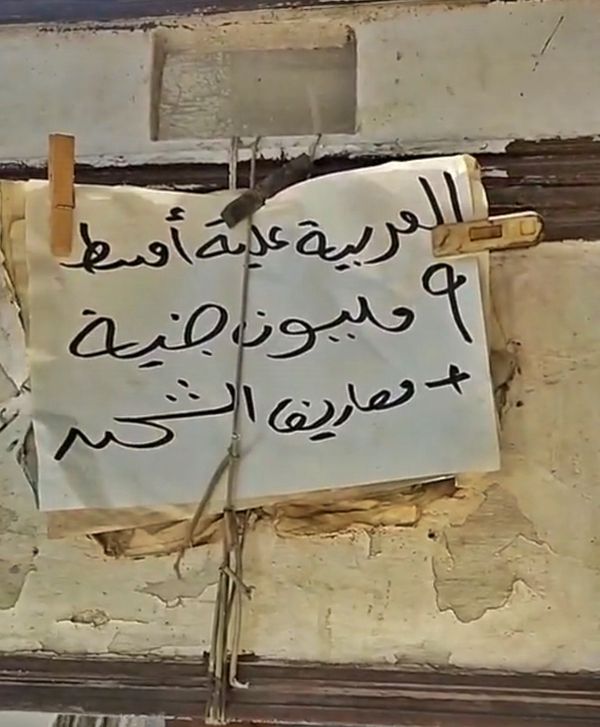 العربية علية أقساط
٩ مليون جنية
+ مصاريف الشحن